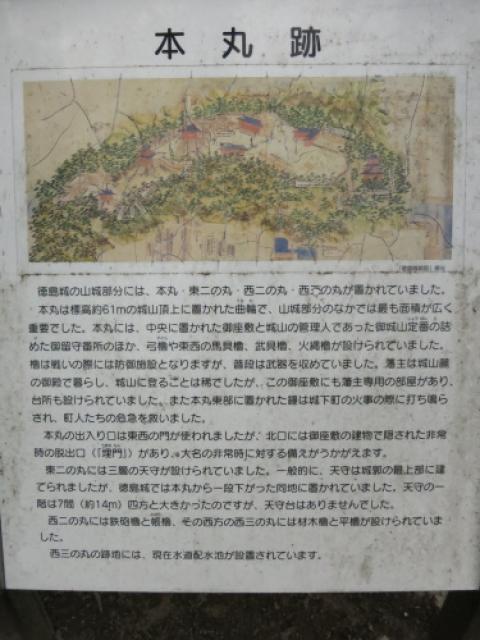 本丸跡
徳島城の山城部分には、本丸・東二の丸・西二の丸・西三の丸が置かれていました。
本丸は標高約61mの城山頂上に置かれた曲輪で、山城部分のなかでは最も面積が広く
重要でした。本丸には、中央に置かれた御座敷と城山の管理人であった御城山定番の詰
めた御留守番所のほか、弓櫓や東西の馬具櫓、武具櫓、火縄櫓が設けられていました。
櫓は戦いの際には防御施設となりますが、普段は武器を収めていました。藩主は城山麓
の御殿で暮らし、城山に登ることは稀でしたが、この御座敷にも藩主専用の部屋があり、
台所も設けられていました。また本丸東部に置かれた鐘は城下町の火事の際に打ち鳴ら
され、町人たちの危急を救いました。
本丸の出入り口は東西の門が使われましたが、北口には御座敷の建物で隠された非常
時の脱出口（「埋門」）があり、大名の非常時に対する備えがうかがえます。
東二の丸には三層の天守が設けられていました。一般的に、天守は城郭の最上部に建
てられましたが、徳島城では本丸から一段下がった同地に置かれていました。天守の一
階は7間（約14m）四方と大きかったのですが、天守台はありませんでした。
西二の丸には鉄砲櫓と帳櫓、その西方の西三の丸には材木櫓と平櫓が設けられていま
した。
西三の丸の跡地には、現在水道配水池が設置されています。